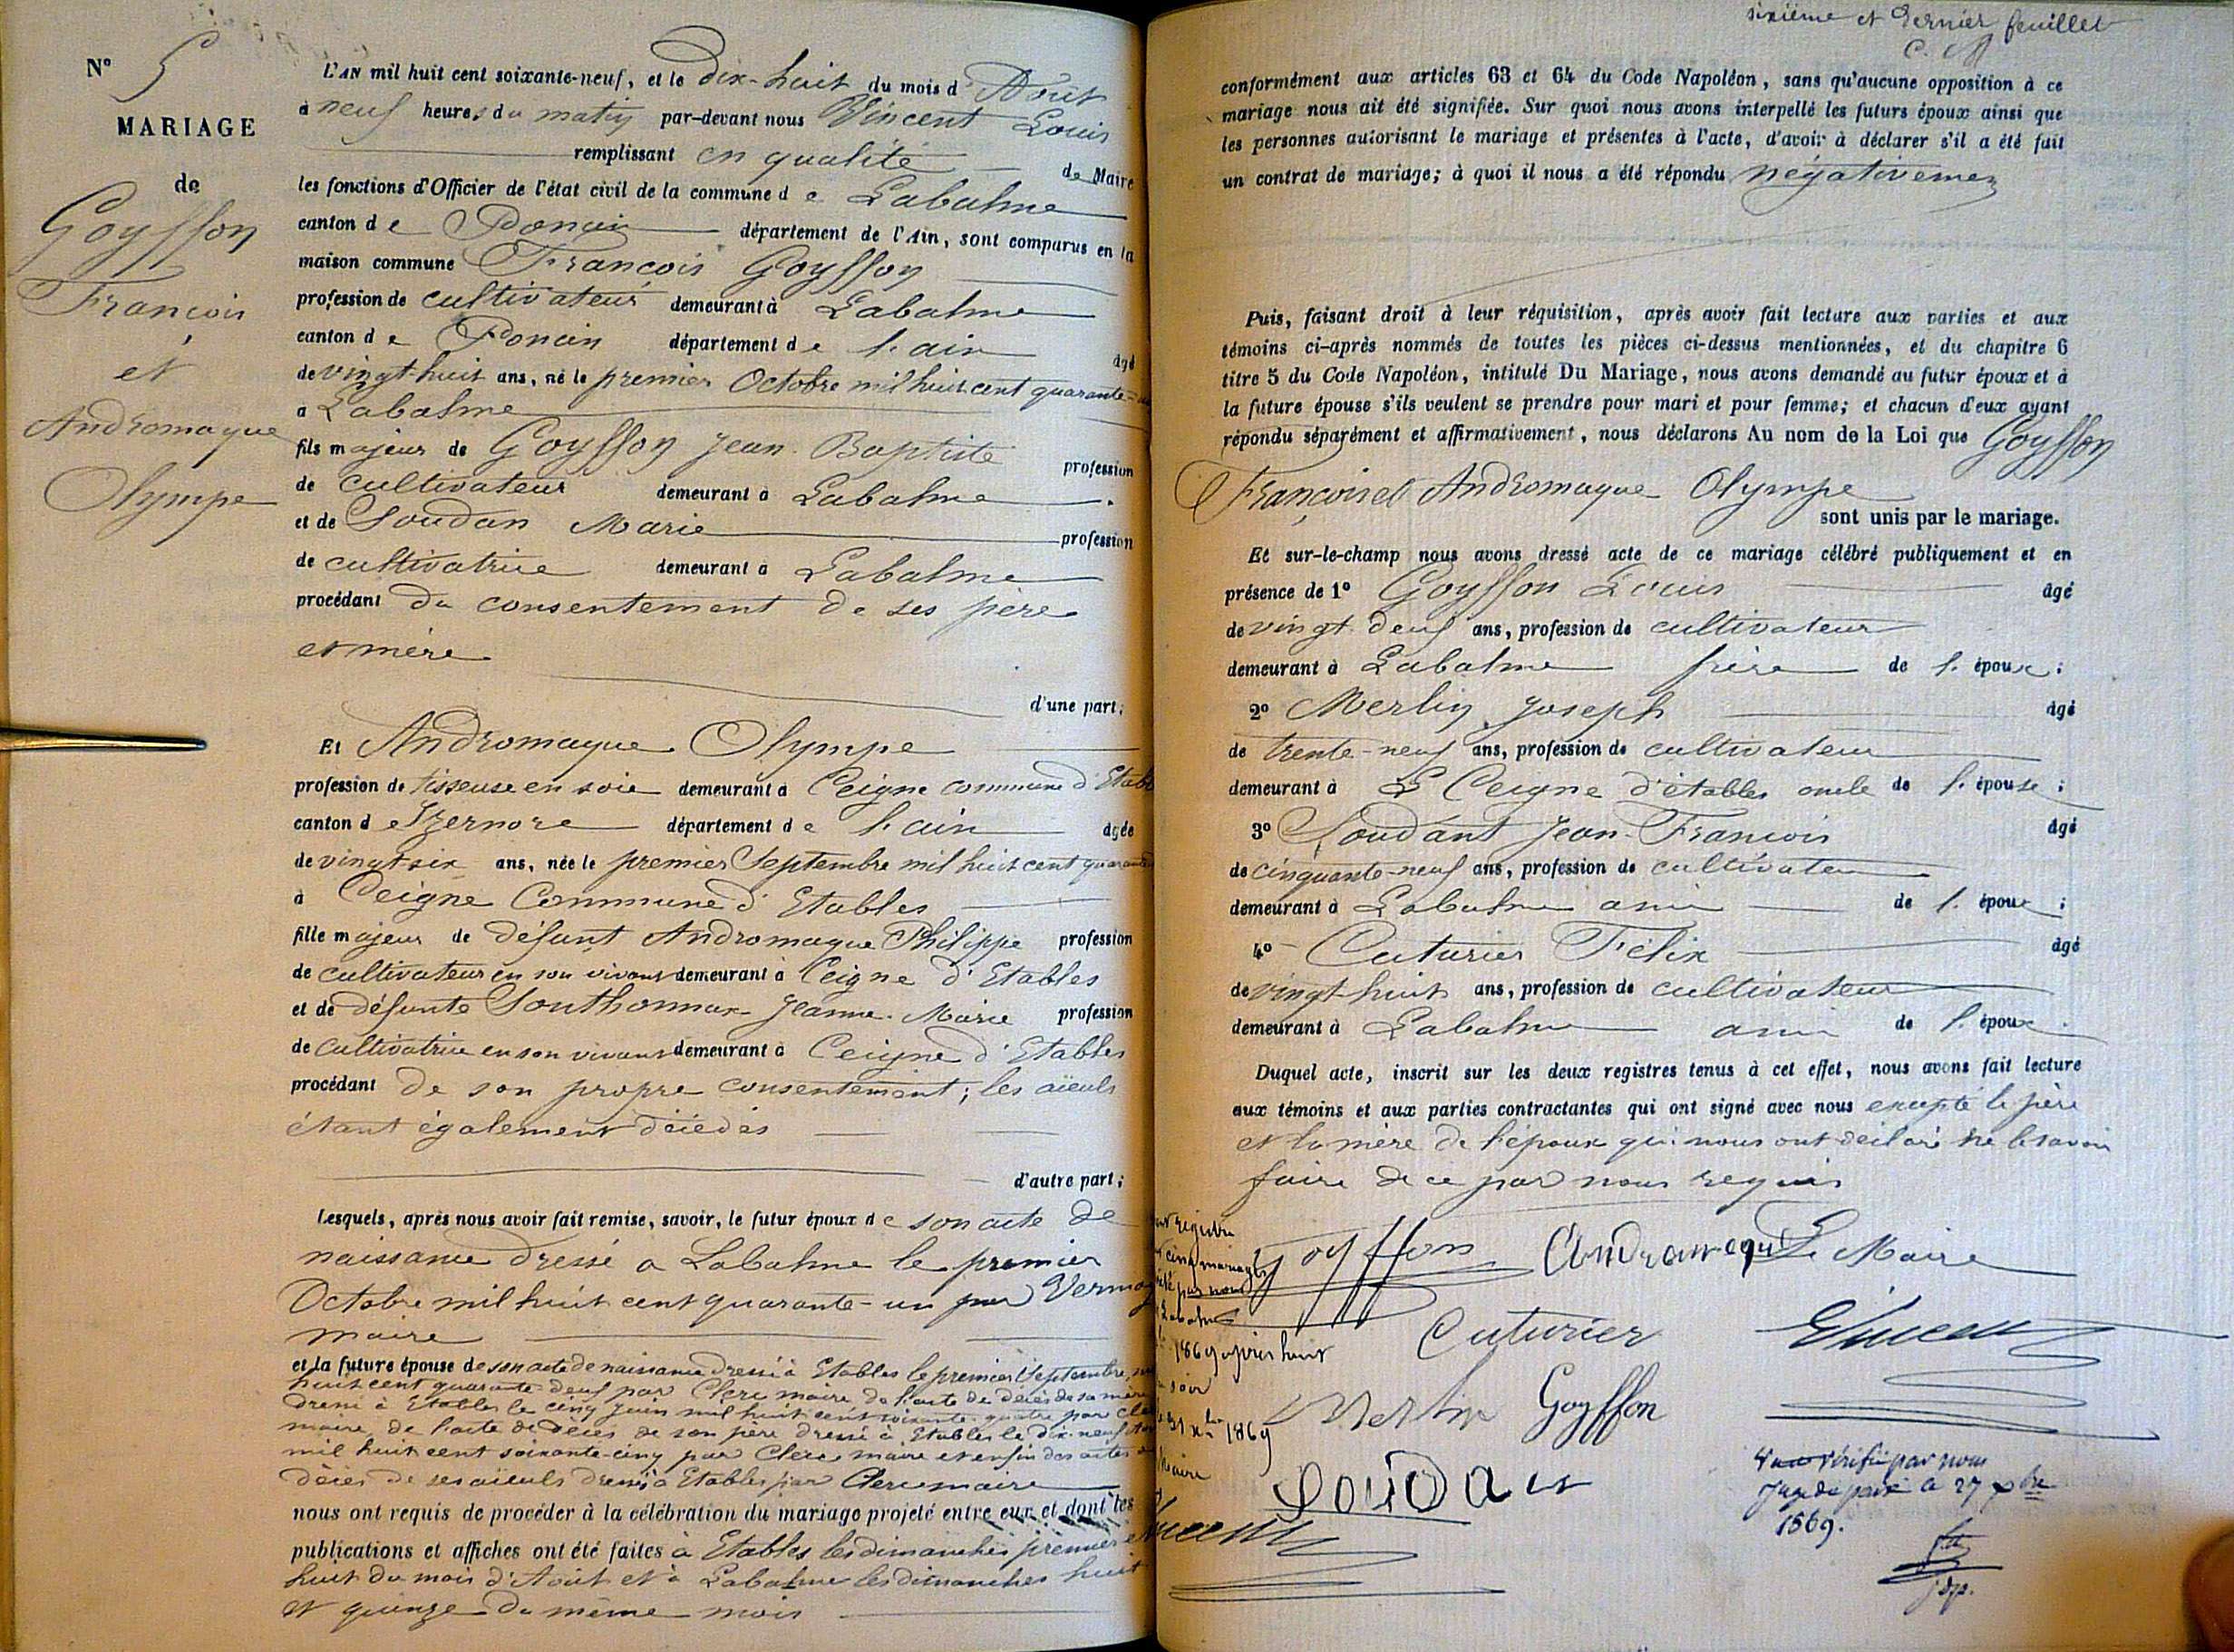 N° 5
MARIAGE
de
Goyffon
François
et
Andromaque
Olympe
L'AN mil huit cent soixante-neuf, et le dix-huit du mois d'Août
à neuf heures du matin par-devant nous Vincent Louis
remplissant en qualité de Maire
les fonctions d'Officier de l'état civil de la commune de Labalme
canton de Poncin département de l'Ain, sont comparus en la
maison commune François Goyffon
profession de cultivateur demeurant à Labalme
canton de Poncin département de l'ain âgé
de vingt-huit ans, né le premier Octobre mil huit cent quarante-
à Labalme
fils majeur de Goyffon Jean-Baptiste profession
de cultivateur demeurant à Labalme
et de Soudan Marie profession
de cultivatrice demeurant à Labalme
procédant du consentement de ses père
et mère
d'une part;
Et Andromaque Olympe
profession de tisseuse en soie demeurant à Ceigne commune d'Etabl
canton d'Izernore département de l'ain âgée
de vingt six ans, née le premier Septembre mil huit cent quarante
à Ceigne Commune d'Etables
fille majeur de défunt Andromaque Philippe profession
de cultivateur en son vivant demeurant à Ceigne d'Etables
et de défunte Southonnax Jeanne-Marie profession
de cultivatrice en son vivant demeurant à Ceigne d'Etables
procédant de son propre consentement; les aïeuls
étant également décédés
d'autre part;
Lesquels, après nous avoir fait remise, savoir, le futur époux de son acte de
naissance dressé a Labalme le premier
Octobre mil huit cent quarante-un par
maire
et la future épouse de son acte de naissance dressé à Etables le premier Septembre
huit cent quarante deux par Clerc maire de l'acte de décès de sa mère
dressé à Etables le cinq juin mil huit cent soixante-quatre par
maire, de l'acte de décès de son père dressé à Etables le dix-neuf
mil huit cent soixante-cinq par Clerc maire et enfin des actes
décès de ses aieuls dressés à Etables par Clerc maire
nous ont requis de procéder à la célébration du mariage projeté entre eux et dont les
publications et affiches ont été faites à Etables les dimanches premier et
huit du mois d'Août et à Labalme les dimanches huit
et quinze du même mois
sixième et dernier feuillet
conformément aux articles 63 et 64 du Code Napoléon, sans qu'aucune opposition à ce
mariage nous ait été signifiée. Sur quoi nous avons interpellé les futurs époux ainsi que
les personnes autorisant le mariage et présentes à l'acte, d'avoir à déclarer s'il a été fait
un contrat de mariage; à quoi il nous a été répondu négativement
Puis, faisant droit à leur réquisition, après avoir fait lecture aux parties et aux
témoins ci-après nommés de toutes les pièces ci-dessus mentionnées, et du chapitre 6
titre 5 du Code Napoléon, intitulé Du Mariage, nous avons demandé au futur époux et à
la future épouse s'ils veulent se prendre pour mari et pour femme; et chacun d'eux ayant
répondu séparément et affirmativement, nous déclarons Au nom de la Loi que Goyffon
François et Andromaque Olympe
sont unis par le mariage.
Et sur-le-champ nous avons dressé acte de ce mariage célébré publiquement et en
présence de 1° Goyffon Louis âgé
de vingt deux ans, profession de cultivateur
demeurant à Labalme frère de l'époux;
2° Merlin Joseph âgé
de trente-neuf ans, profession de cultivateur
demeurant à Ceigne d'étables oncle de l'épouse;
3° Soudant Jean-François âgé
de cinquante-neuf ans, profession de cultivateur
demeurant à Labalme ami de l'époux;
4° Cuturier Félix âgé
de vingt-huit ans, profession de cultivateur
demeurant à Labalme ami de l'époux.
Duquel acte, inscrit sur les deux registres tenus à cet effet, nous avons fait lecture
aux témoins et aux parties contractantes qui ont signé avec nous excepté le père
et la mère de l'époux qui nous ont déclaré ne le savoir
faire de ce par nous requis
Goyffon Andromaque Le Maire
Cuturier Vincent
Merlin Goyffon
Soudan
registre
cinq mariages
par nous
Labalme
1869 après huit
soir
1869
maire
vérifié par nous
Juge de paix le 27 xbre
1869.